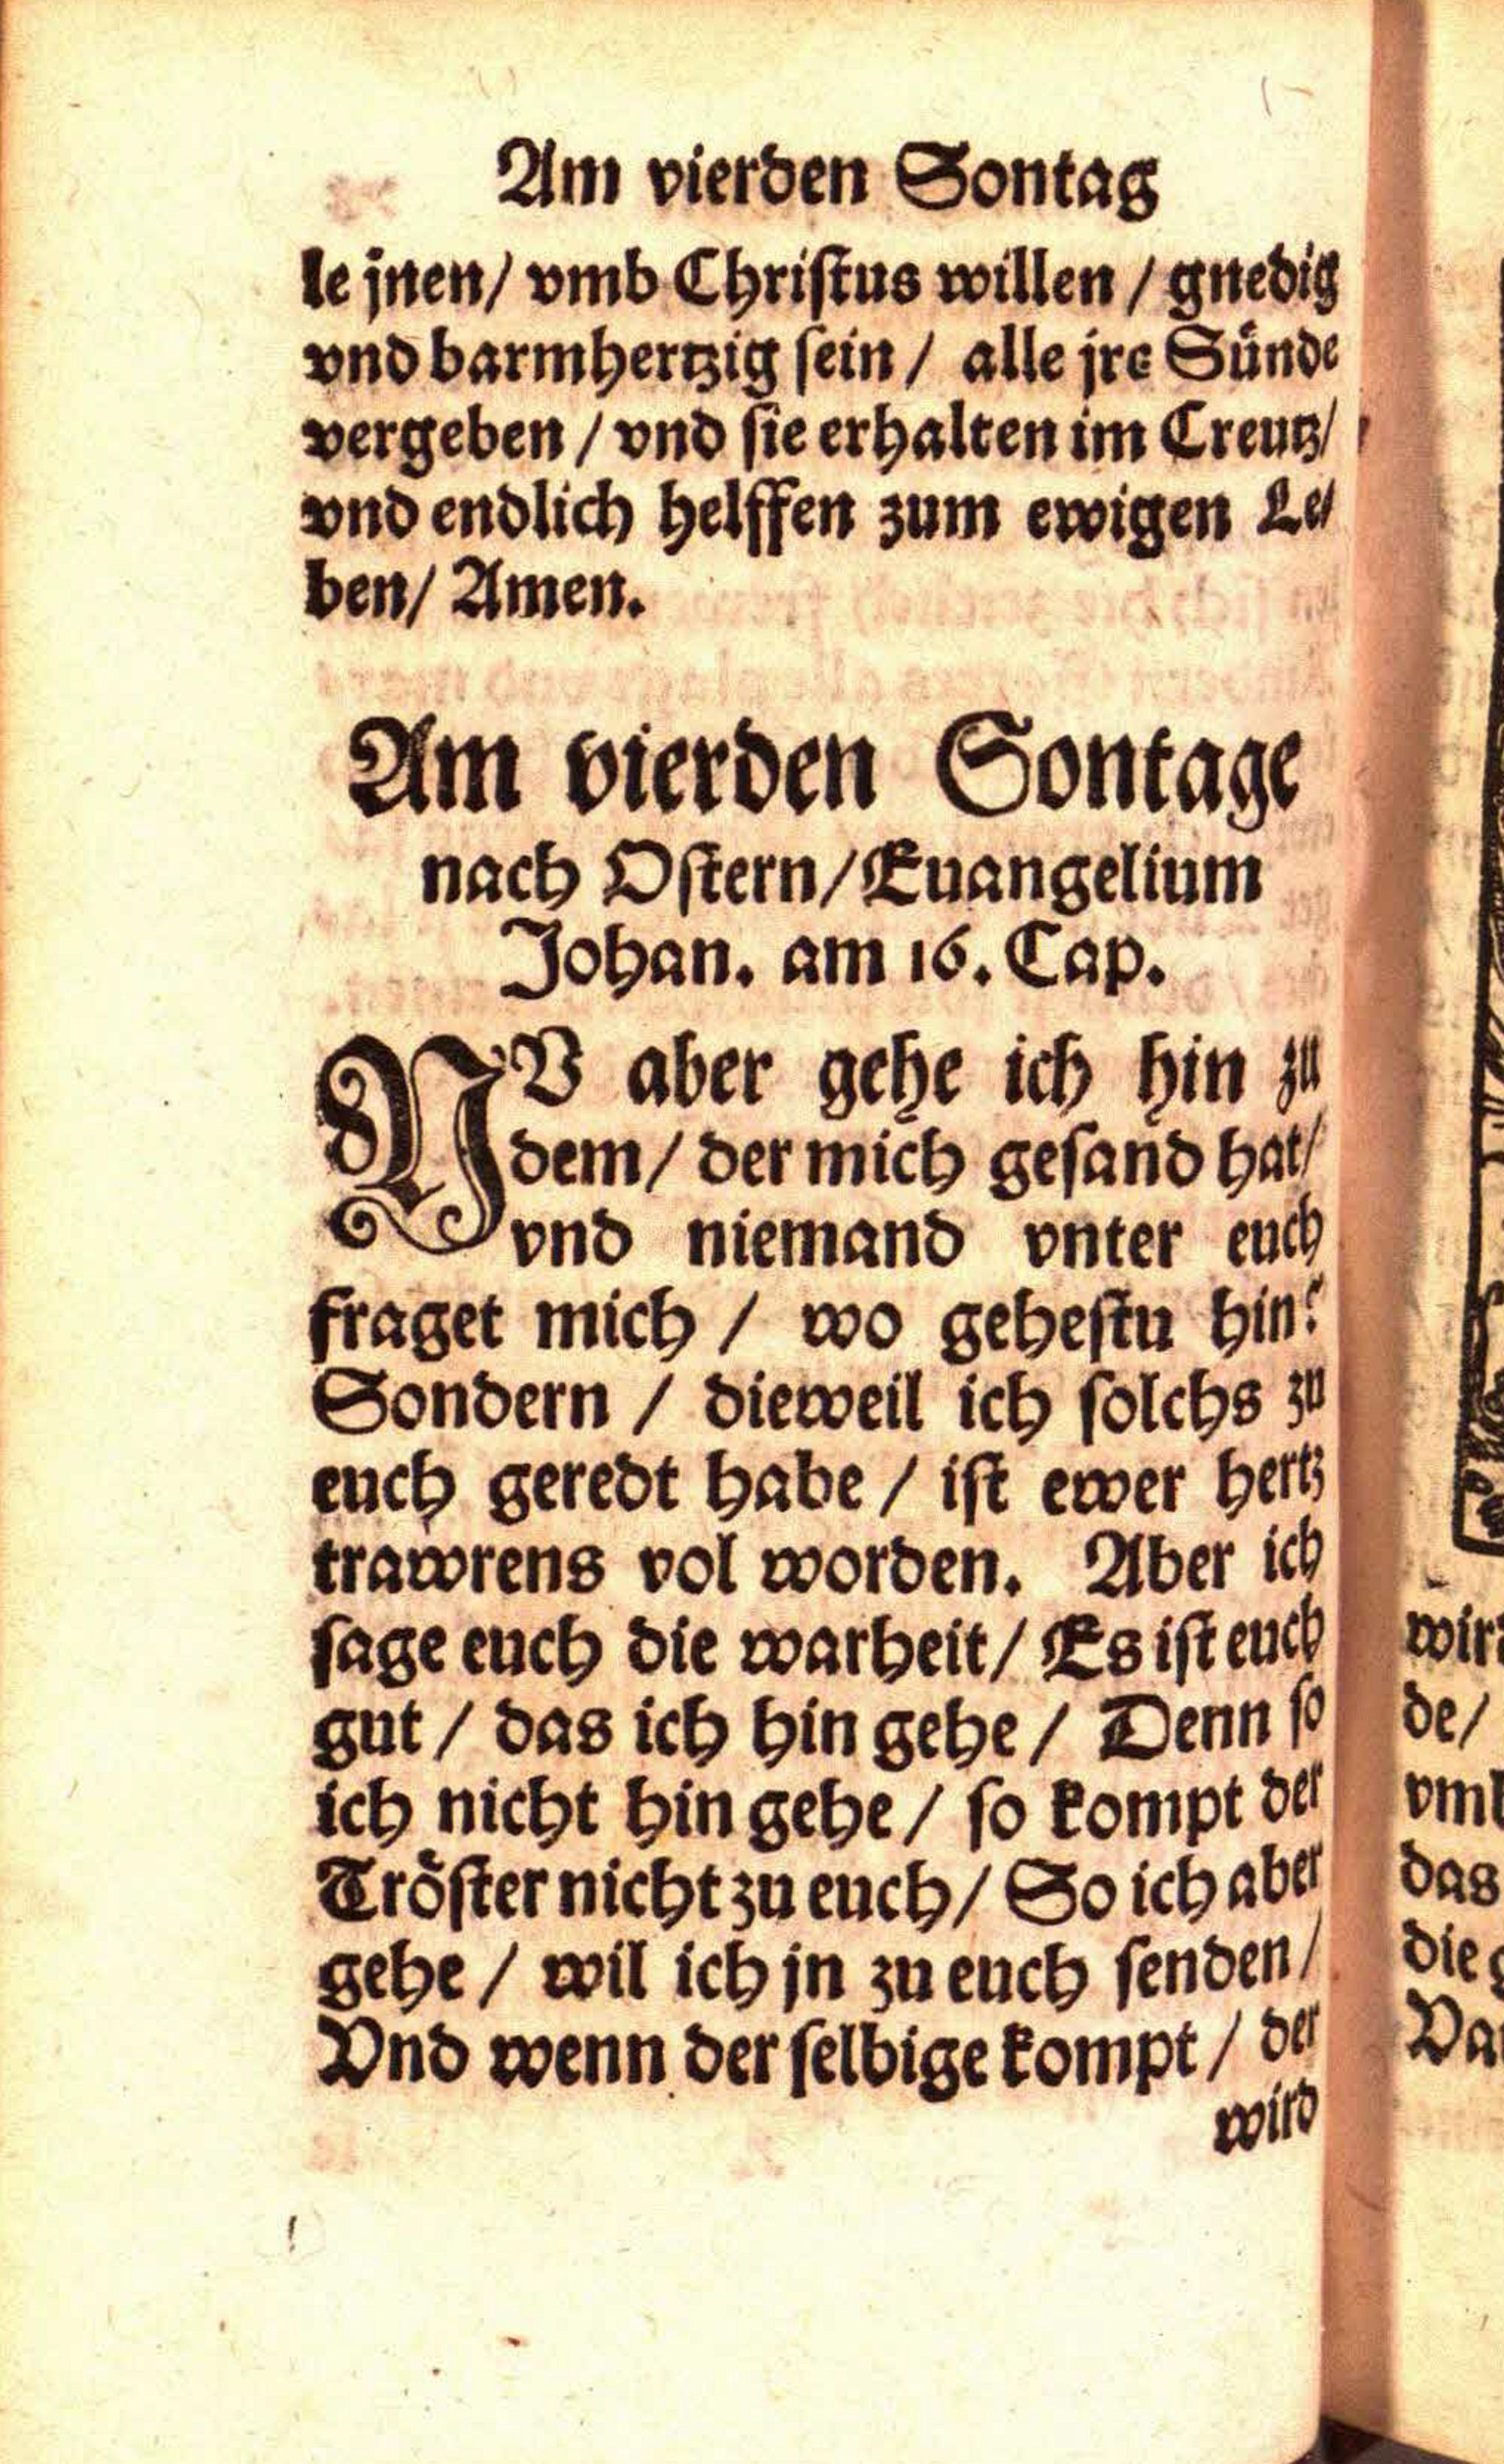 Am vierden Sontag
le jnen/ vmb Chriſtus willen / gnedig
vnd barmhertzig ſein / alle jre Sünde
vergeben / vnd ſie erhalten im Creutz/
vnd endlich helffen zum ewigen Le/
ben/ Amen.
Am vierden Sontage
nach Oſtern/ Euangelium
Johan. am 16. Cap.
NV aber gehe ich hin zu
dem/ der mich geſand hat/
vnd niemand vnter euch
fraget mich / wo geheſtu hin?
Sondern / dieweil ich ſolchs zu
euch geredt habe / iſt ewer hertz
trawrens vol worden. Aber ich
ſage euch die warheit/ Es iſt euch
gut / das ich hin gehe / Denn ſo
ich nicht hin gehe / ſo kompt der
Tröſter nicht zu euch/ So ich aber
gehe / wil ich jn zu euch ſenden/
Vnd wenn der ſelbige kompt / der
wird
de/
das
die